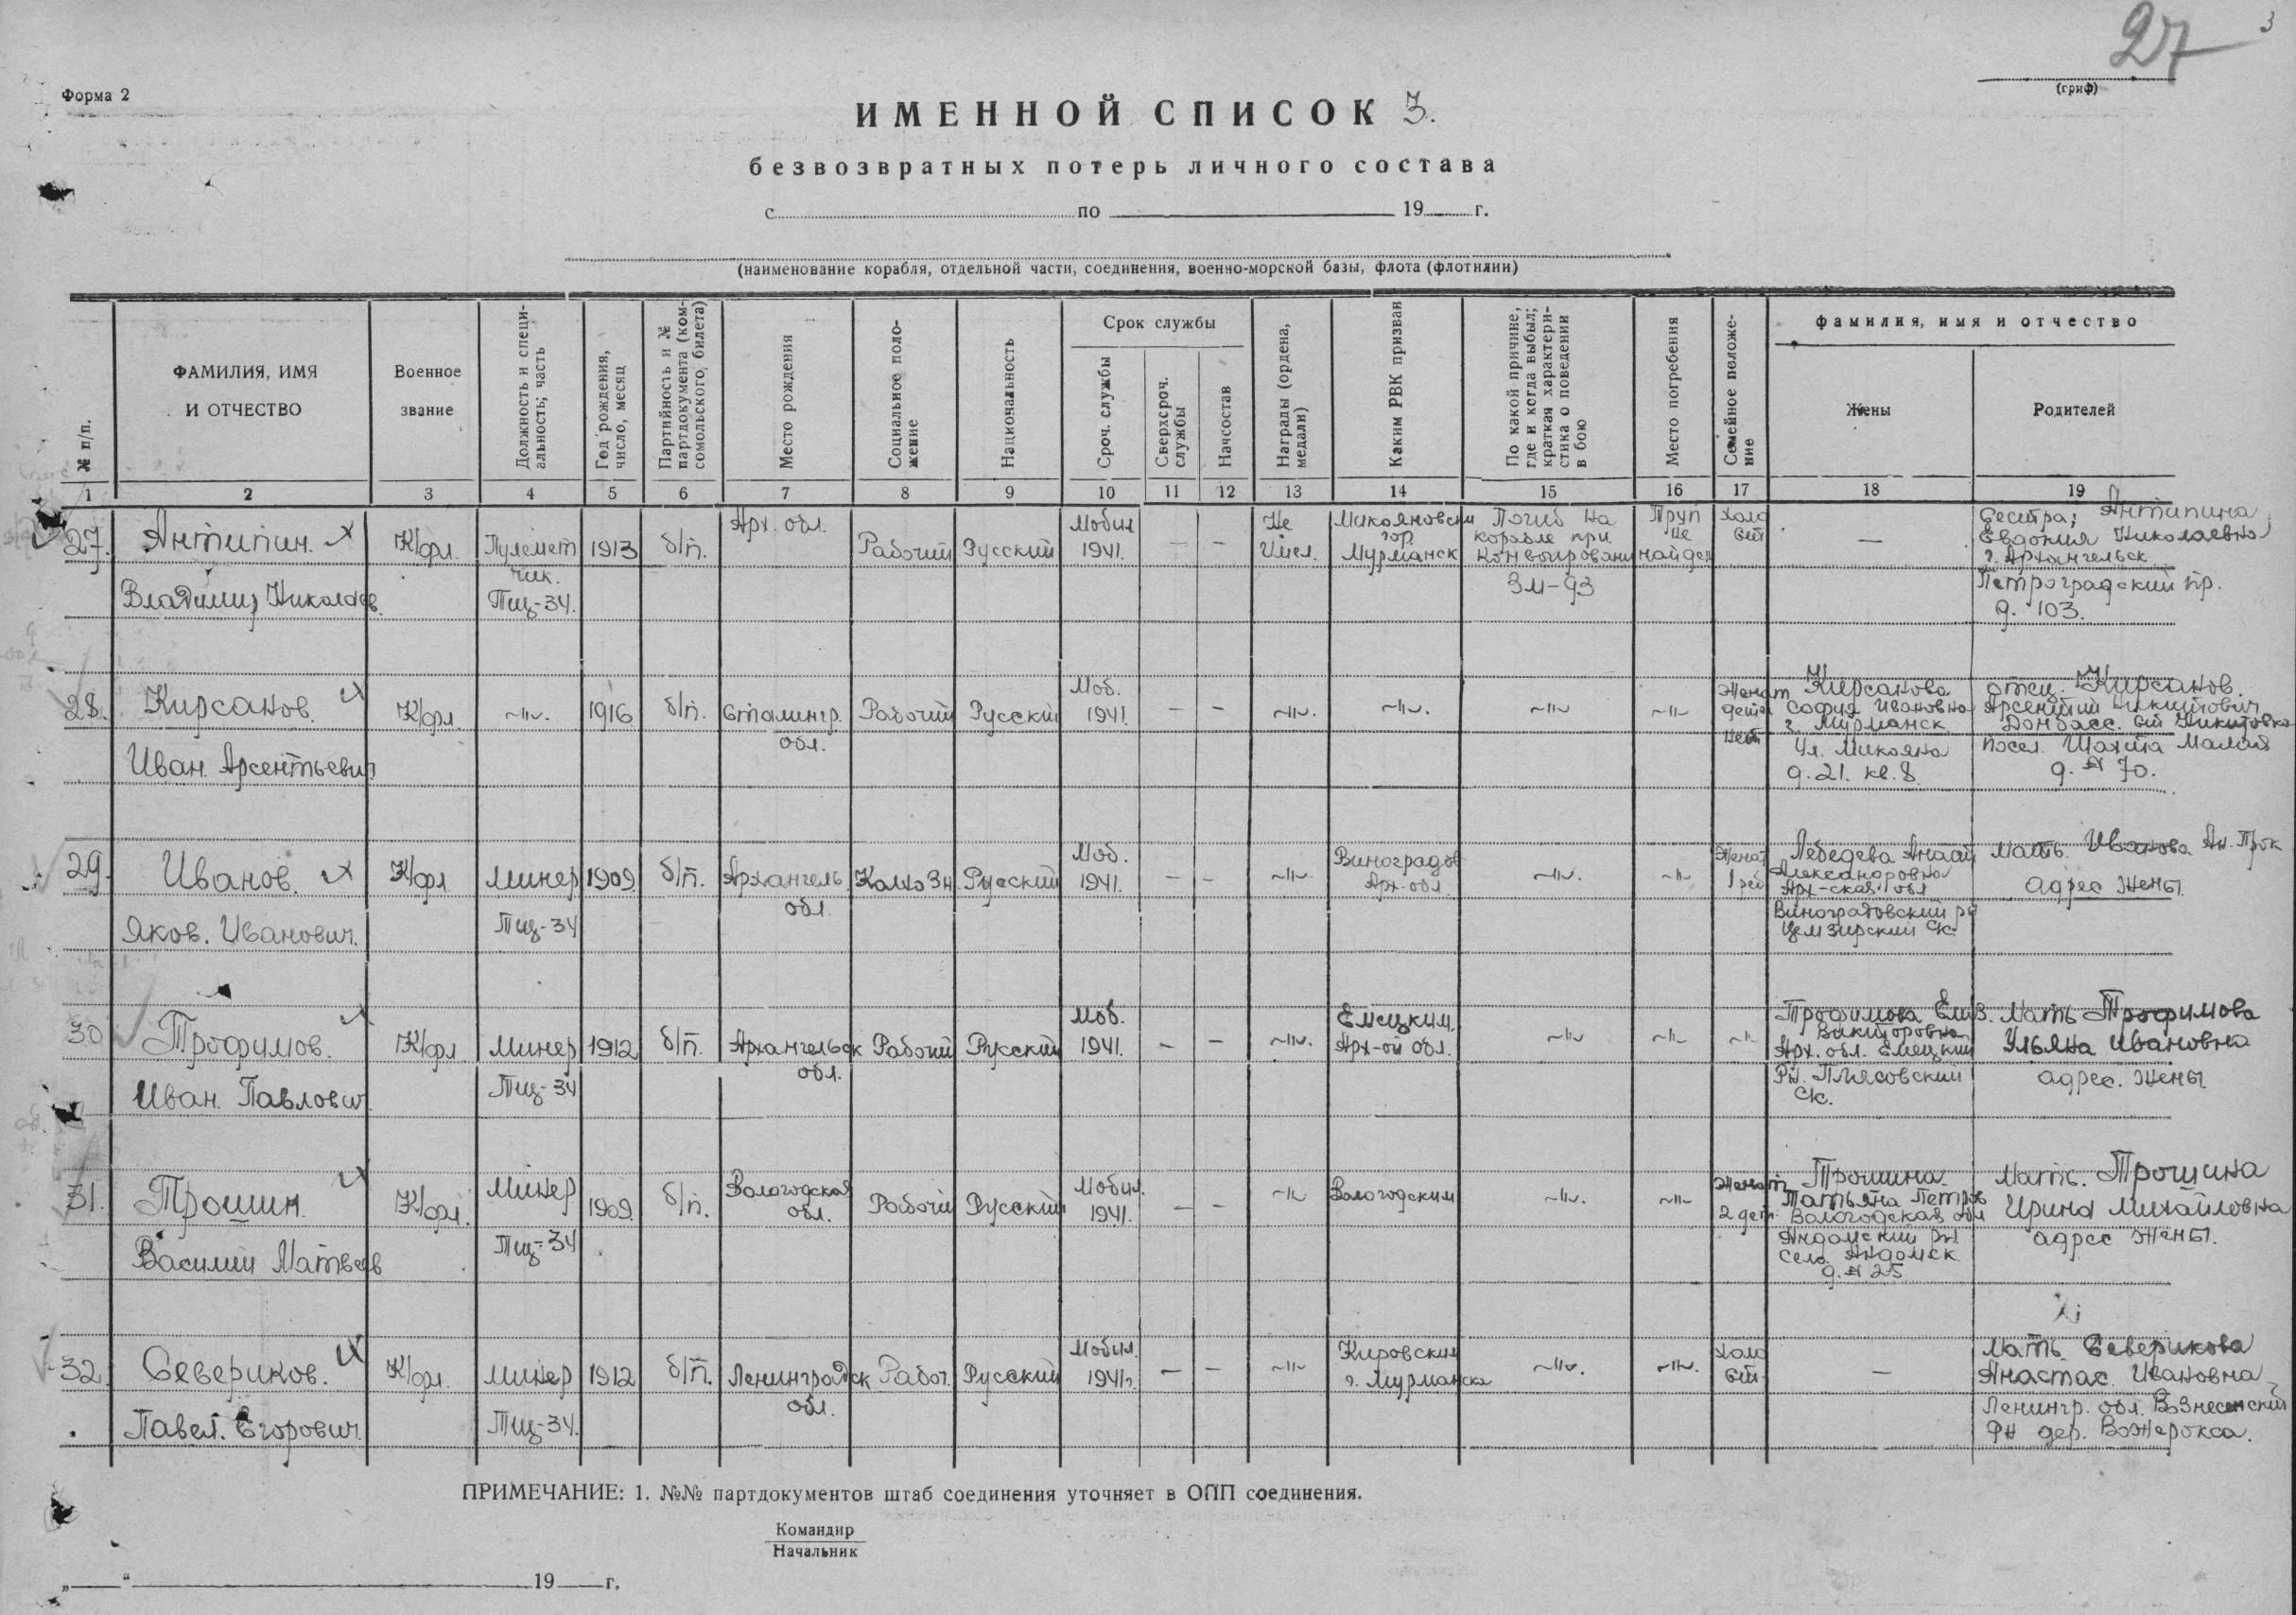 27
3
Форма 2
(гриф)
ИМЕННОЙ СПИСОК 3.
безвозвратных потерь личного состава
с по 19 г.
(наименование корабля, отдельной части, соединения, военно-морской базы, флота (флотилии)
№ п/п.
ФАМИЛИЯ, ИМЯ
И ОТЧЕСТВО
Военное
звание
Должность и специ-
альность; часть
Год рождения,
число, месяц
Партийность и №
партдокумента (ком-
сомольского, билета)
Место рождения
Социальное поло-
жение
Национальность
Срок службы
Сроч. службы
Сверхсроч.
службы
Начсостав
Награды (ордена,
медали)
Каким РВК призван
По какой причине,
где и когда выбыл;
краткая характери-
стика о поведении
в бою
Место погребения
Семейное положе-
ние
фамилия, имя и отчество
Жены
Родителей
1 2 3 4 5 6 7 8 9 10 11 12 13 14 15 16 17 18 19
27.
Антипин.
Владимир Николаев.
К/фл.
Пулемет
чик.
Тщ-34.
1913
б/п.
Арх. обл.
Рабочий
Русский
Мобил
1941.
—
—
Не
Имел.
Микояновски
гор
Мурманск
Погиб на
корабле при
Конвоировани
ЗМ-93
Труп
не
найден
Холо
ст
—
Сестра; Антипина
Евдокия Николаевна
г. Архангельск
Петроградский пр.
д. 103.
28.
Кирсанов.
Иван. Арсентьевич
К/фл.
~"~.
1916
б/п.
Сталингр.
обл.
Рабочий
Русский
Моб.
1941.
—
—
~"~.
~"~.
~"~
~"~
Женат
дети
нет
Кирсанова
София Ивановна
г. Мурманск
Ул. Микояна
д. 21. кв. 8.
отец. Кирсанов.
Арсентий Никитович
Донбасс. ст Никитовка
посел. Шахта Малая
д. № 70.
29.
Иванов.
Яков. Иванович.
К/фл
Минер
Тщ-34
1909
б/п.
Архангель
обл.
Колхозн.
Русский
Моб.
1941.
—
—
~"~
Виноградов
Арх-обл.
~"~.
~"~
Женат
1 реб
Лебедева
Александровна
Арх-ская обл
Виноградовский рн
ск.
мать. Иванова Ан. Прок
адрес жены.
30
Трофимов.
Иван. Павлович
К/фл.
Минер
Тщ-34
1912
б/п.
Архангельск
обл.
Рабочий
Русский
Моб.
1941.
—
—
~"~.
Емецким.
Арх-ой обл.
~"~
~"~
~"~
Трофимова Елиз.
Викторовна
Арх. обл. Емецкий
Рн. Плясовский
Ск.
Мать Трофимова
Ульяна Ивановна
адрес. жены.
31.
Трошин.
Василий Матвеев
К/фл.
Минер
Тщ-34
1909.
б/п.
Вологодская
обл.
Рабочий
Русский
Мобил.
1941.
—
—
~"~
Вологодским
~"~.
~"~
Женат
2 дет.
Трошина
Татьяна Петров
Вологодская обл
Андомский рн
село. Андомск
д. № 25
Мать. Трошина
Ирина Михайловна
адрес жены.
32.
Севериков.
Павел. Егорович.
К/фл.
Минер
Тщ-34.
1912
б/п.
Ленинградск
обл.
Рабоч.
Русский
Мобил.
1941г.
—
—
~"~
Кировский
г. Мурманска
~"~.
~"~.
холо
ст
—
Мать. Северикова
Анастас. Ивановна
Ленингр. обл. Вознесенский
рн дер. Вожерокса.
ПРИМЕЧАНИЕ: 1. №№ партдокументов штаб соединения уточняет в ОПП соединения.
Командир
Начальник
„ “ 19 г.